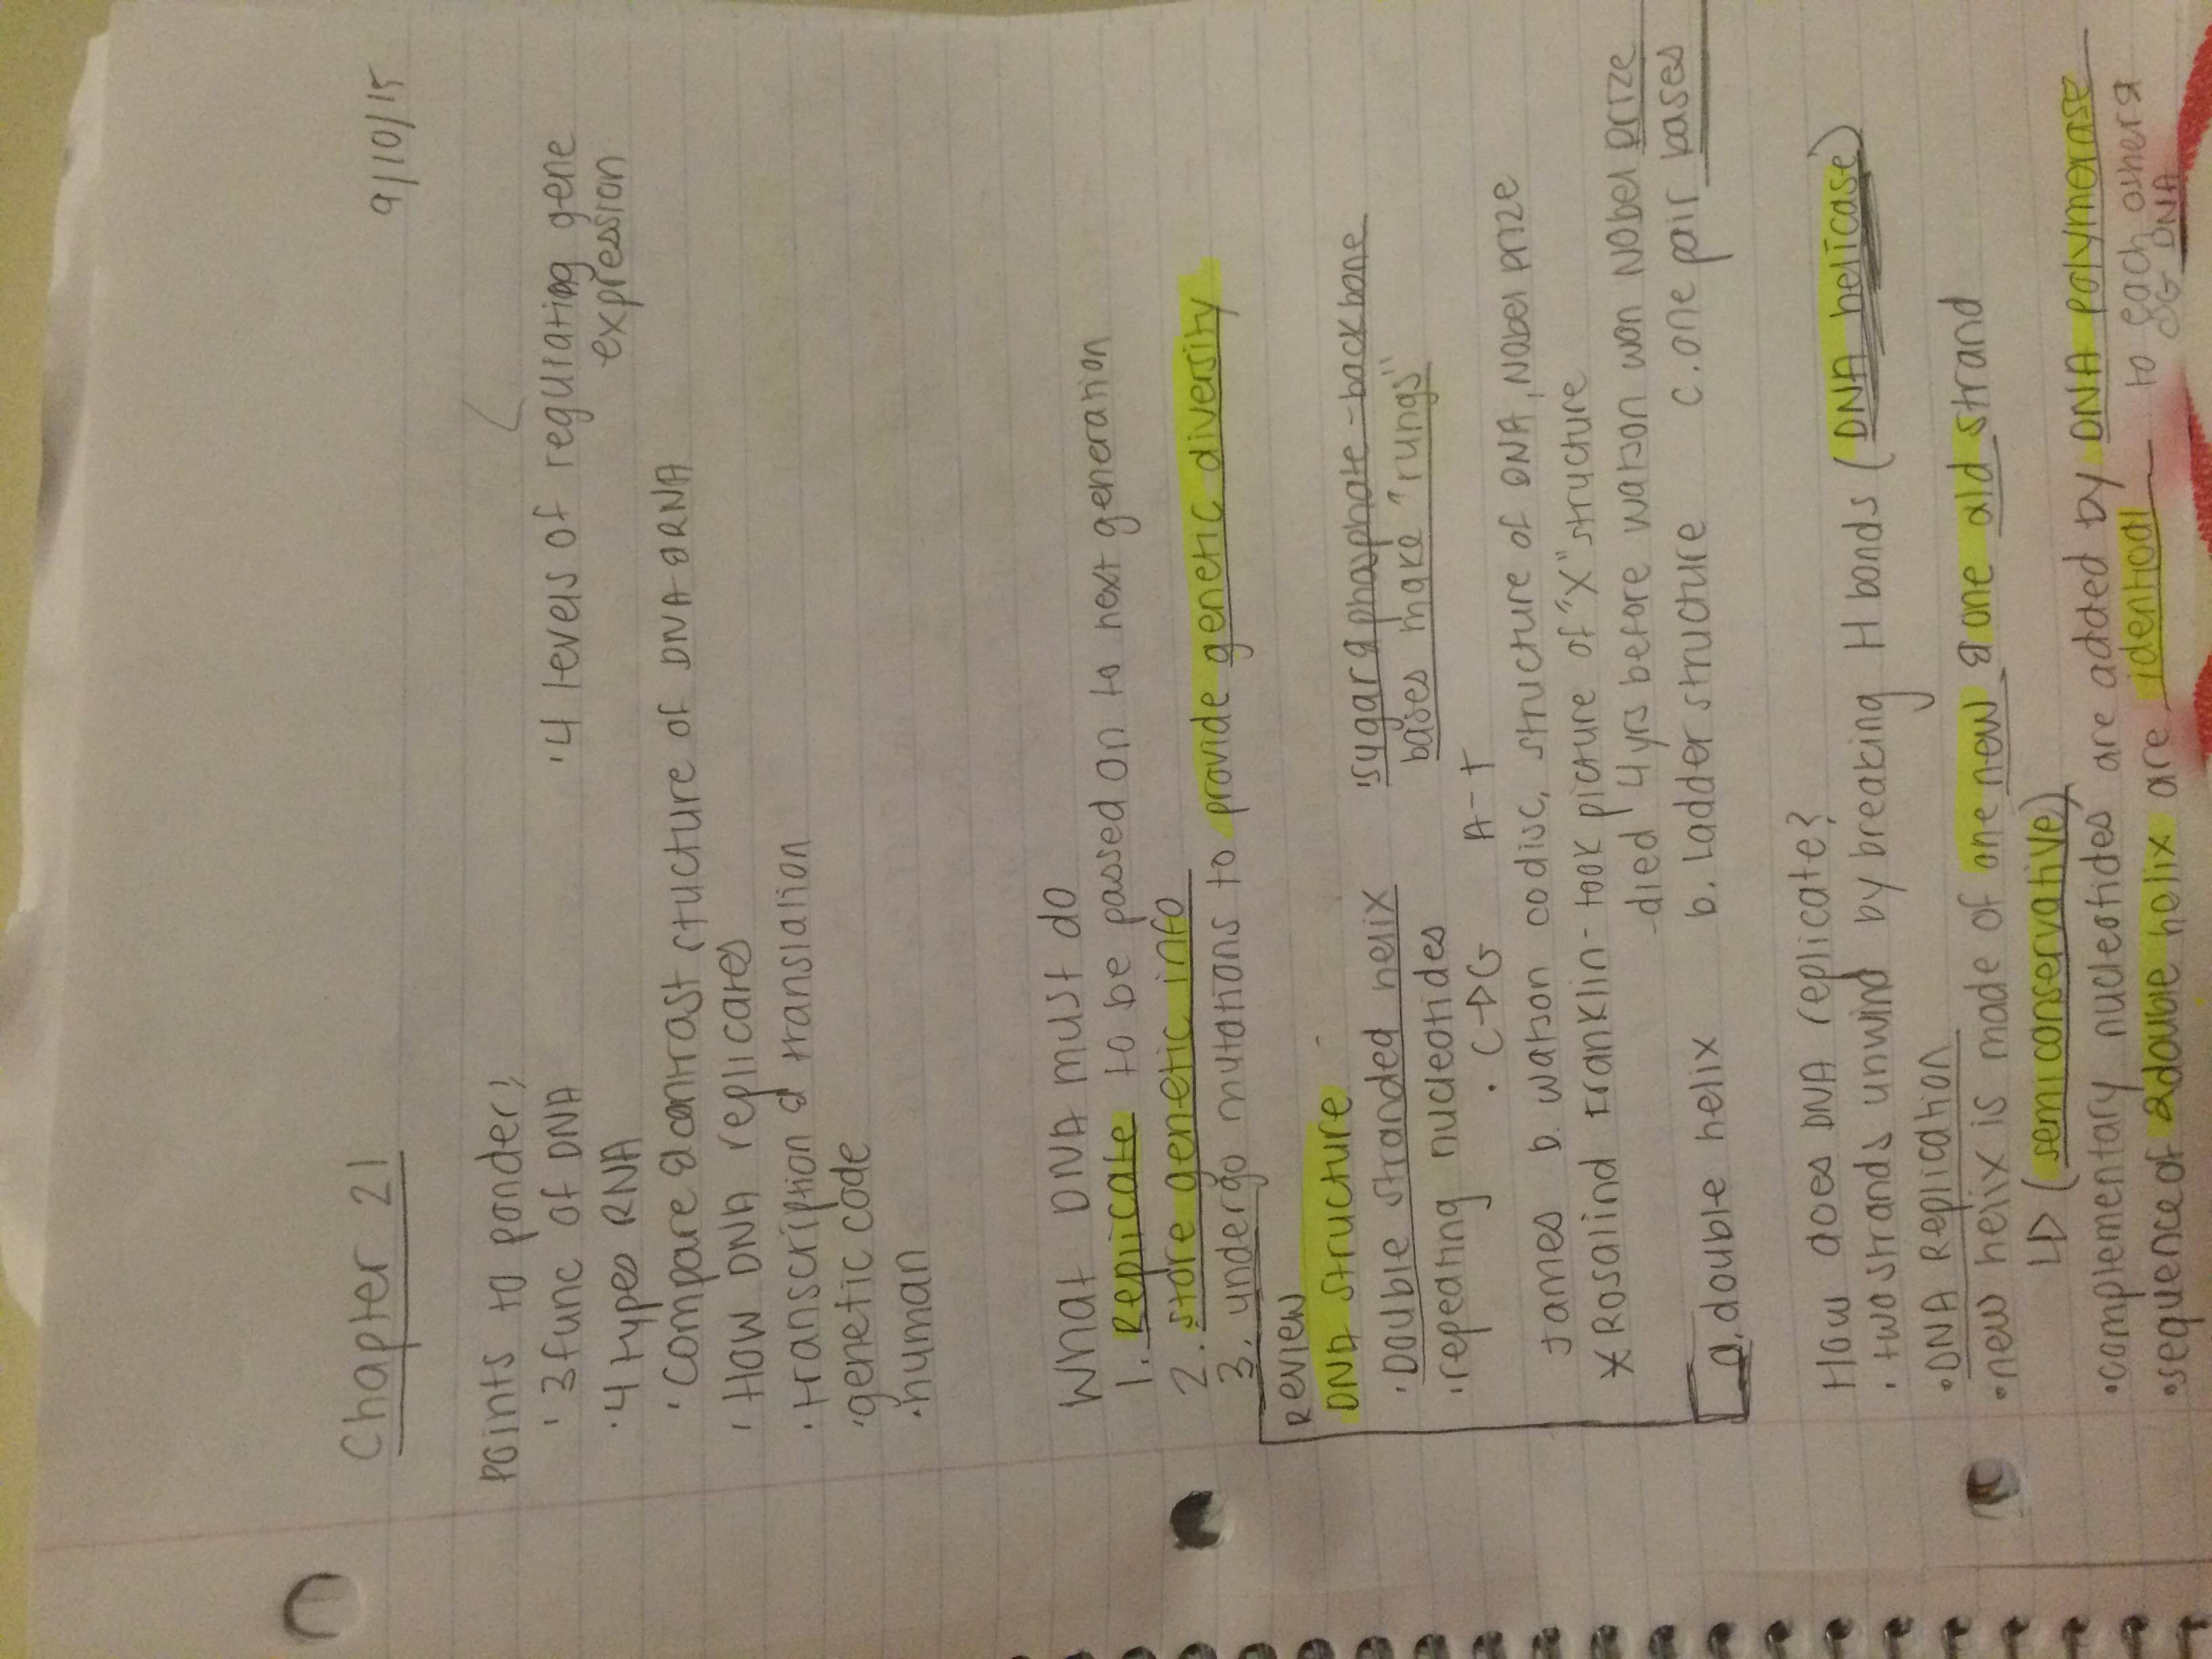 9/10/15
Chapter 21
points to ponder;
· 3 func of DNA · 4 levels of regulating gene
expression
· 4 types RNA
· compare & contrast structure of DNA & RNA
· How DNA replicates
· transcription & translation
· genetic code
· human
What DNA must do
1. Replicate to be passed on to next generation
2. store genetic info
3. undergo mutations to provide genetic diversity
Review
DNA structure
· Double stranded helix · sugar & phosphate - backbone
bases make "rungs"
· repeating nucleotides
· C→G A-T
James D. Watson codisc, structure of DNA, Nobel prize
* Rosalind Franklin - took picture of "X" structure
- died 4yrs before watson won Nobel prize
a. double helix b. Ladder structure c. one pair bases
How does DNA replicate?
· two strands unwind by breaking H bonds (DNA helicase)
· DNA Replication
· new helix is made of one new & one old strand
↳ (semiconservative)
· complementary nucleotides are added by DNA polymerase
· sequence of double helix are identical to each other &
OG DNA